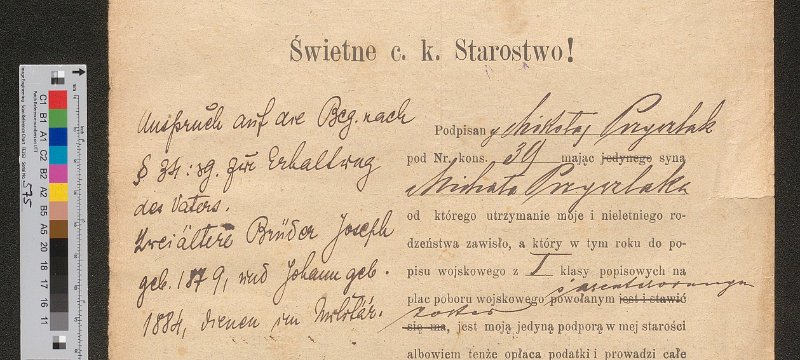 Świetne c. k. Starostwo!
Anspruch auf die Beg. nach
§ 34: zur Erhaltung
des Vaters.
Zwei ältere Brüder Joseph
geb. 1879, und Johann geb.
1884, dienen im Militär.
Podpisany Mikołaj Przyszlak
pod Nr. kons. 39 mając jedynego syna
Michała Przyszlaka
od którego utrzymanie moje i nieletniego ro-
dzeństwa zawisło, a który w tym roku do po-
pisu wojskowego z I klasy popisowych na
plac poboru wojskowego powołanym jest i stawić
zaasenterowanym
został
się ma, jest moją jedyną podporą w mej starości
albowiem tenże opłaca podatki i prowadzi całe